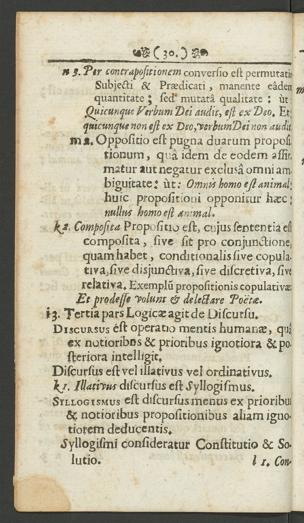 (30.)
n 3. Per contrapositionem conversio est permutatio
Subjecti & Prædicati, manente eâdem
quantitate; sed mutatâ qualitate: ùt
Quicunque Verbum Dei audit, est ex Deo, Et
quicunque non est ex Deo, verbum Dei non audit.
m 2. Oppositio est pugna duarum proposi-
tionum, quâ idem de eodem affir-
matur aut negatur exclusâ omni am-
biguitate: ùt: Omnis homo est animal;
huic propositioni opponitur hæc;
nullus homo est animal.
k 2. Composita Propositio est, cujus sententia est
composita, sive sit pro conjunctione,
quam habet, conditionalis sive copula-
tiva, sive disjunctiva, sive discretiva, sive
relativa. Exemplũ propositionis copulativæ
Et prodesse volunt & delectare Poëtæ.
i 3. Tertia pars Logicæ agit de Discursu.
DISCURSUS est operatio mentis humanæ, quâ
ex notioribus & prioribus ignotiora & po-
steriora intelligit.
Discursus est vel illativus vel ordinativus.
k 1. Illativus discursus est Syllogismus.
SYLLOGISMUS est discursus mentis ex prioribus
& notioribus propositionibus aliam igno-
tiorem deducentis.
Syllogismi consideratur Constitutio & So-
lutio. l 1. Con-